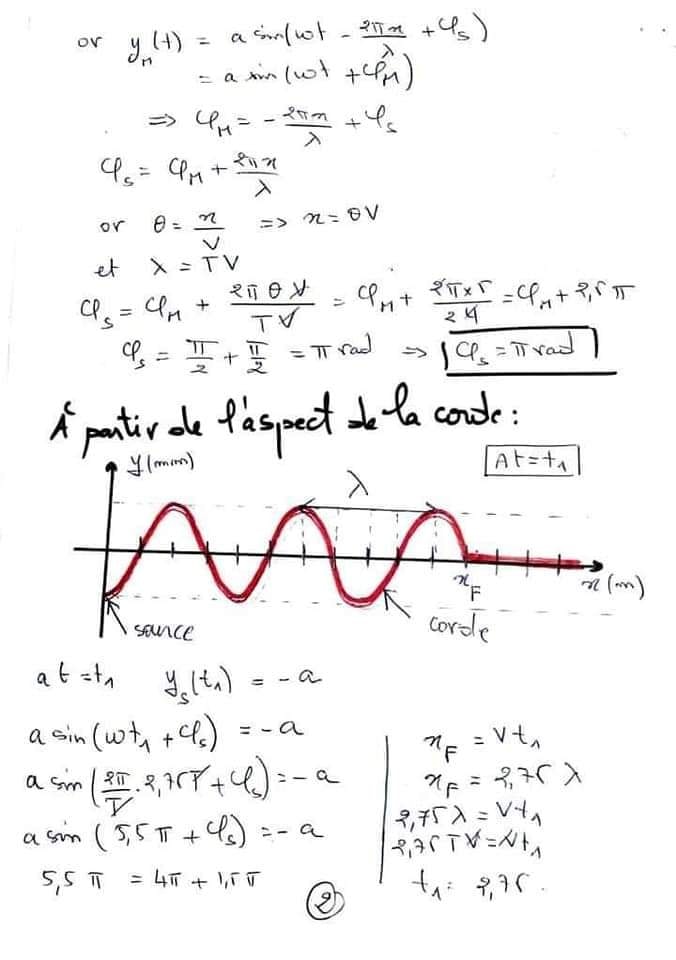 or y_M(t) = a sin(ωt - 2πx/λ + φ_s)
= a sin(ωt + φ_M)
=> φ_M = - 2πx/λ + φ_s
φ_s = φ_M + 2πx/λ
or θ = x/V => x = θV
et λ = TV
φ_s = φ_M + 2πθV/TV = φ_M + 2π×5/24 = φ_M + 2,5π
φ_s = π/2 + π/2 = π rad => φ_s = π rad
À partir de l'aspect de la corde :
y(mm)
At=t₁
λ
x_F
x(m)
source
corde
at=t₁ y_s(t₁) = -a
a sin(ωt₁ + φ_s) = -a
a sin(2π/T . 2,75T + φ_s) = -a
a sin(5,5π + φ_s) = -a
5,5π = 4π + 1,5π
x_F = Vt₁
x_F = 2,75λ
2,75λ = Vt₁
2,75TV = Vt₁
t₁ = 2,75.
2